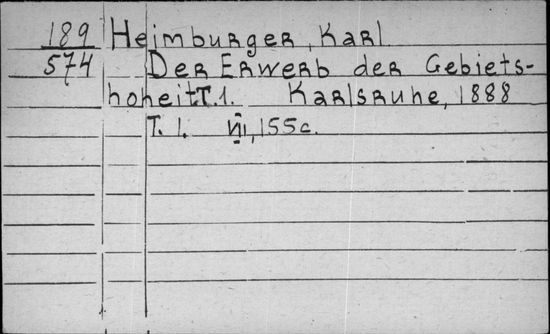 189 Heimburger, Karl
574 Der Erwerb der Gebiets-
hoheit T.1. Karlsruhe, 1888
T. 1. VII, 155c.